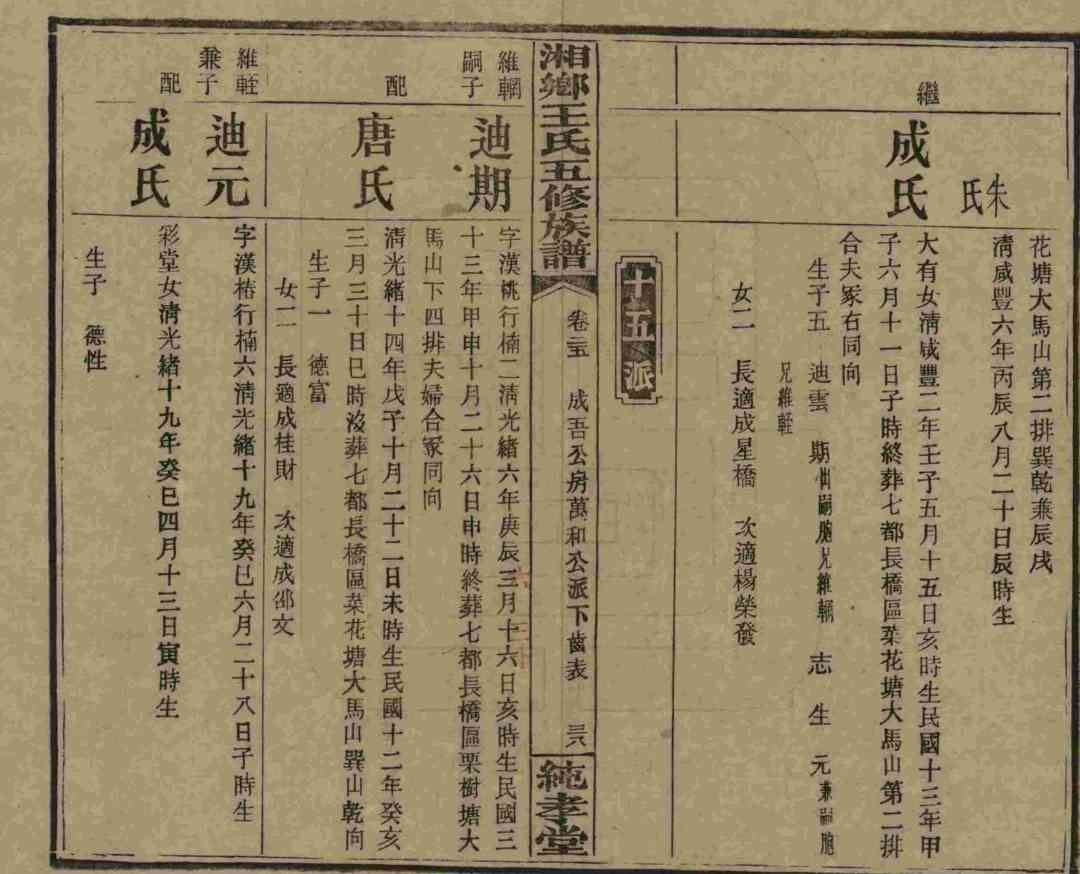 花塘大馬山第二排巽乾兼辰戌
朱氏
清咸豐六年丙辰八月二十日辰時生
繼
成氏
大有女清咸豐二年壬子五月十五日亥時生民國十三年甲
子六月十一日子時終葬七都長橋區菜花塘大馬山第二排
合夫冢右同向
生子五 迪雲 期出嗣胞兄維輞 志 生 元兼嗣胞
兄維輊
女二 長適成星橋 次適楊榮發
十五派
湘鄉王氏五修族譜
卷 成吾公房萬和公派下齒表
純孝堂
維輞
嗣子
迪期
字漢桃行楠二清光緒六年庚辰三月十六日亥時生民國三
十三年甲申十月二十六日申時終葬七都長橋區栗樹塘大
馬山下四排夫婦合冢同向
配
唐氏
清光緒十四年戊子十月二十二日未時生民國十二年癸亥
三月三十日巳時沒葬七都長橋區菜花塘大馬山巽山乾向
生子一 德富
女二 長適成桂財 次適成邵文
維輊
兼子
迪元
字漢楁行楠六清光緒十九年癸巳六月二十八日子時生
配
成氏
彩堂女清光緒十九年癸巳四月十三日寅時生
生子 德性